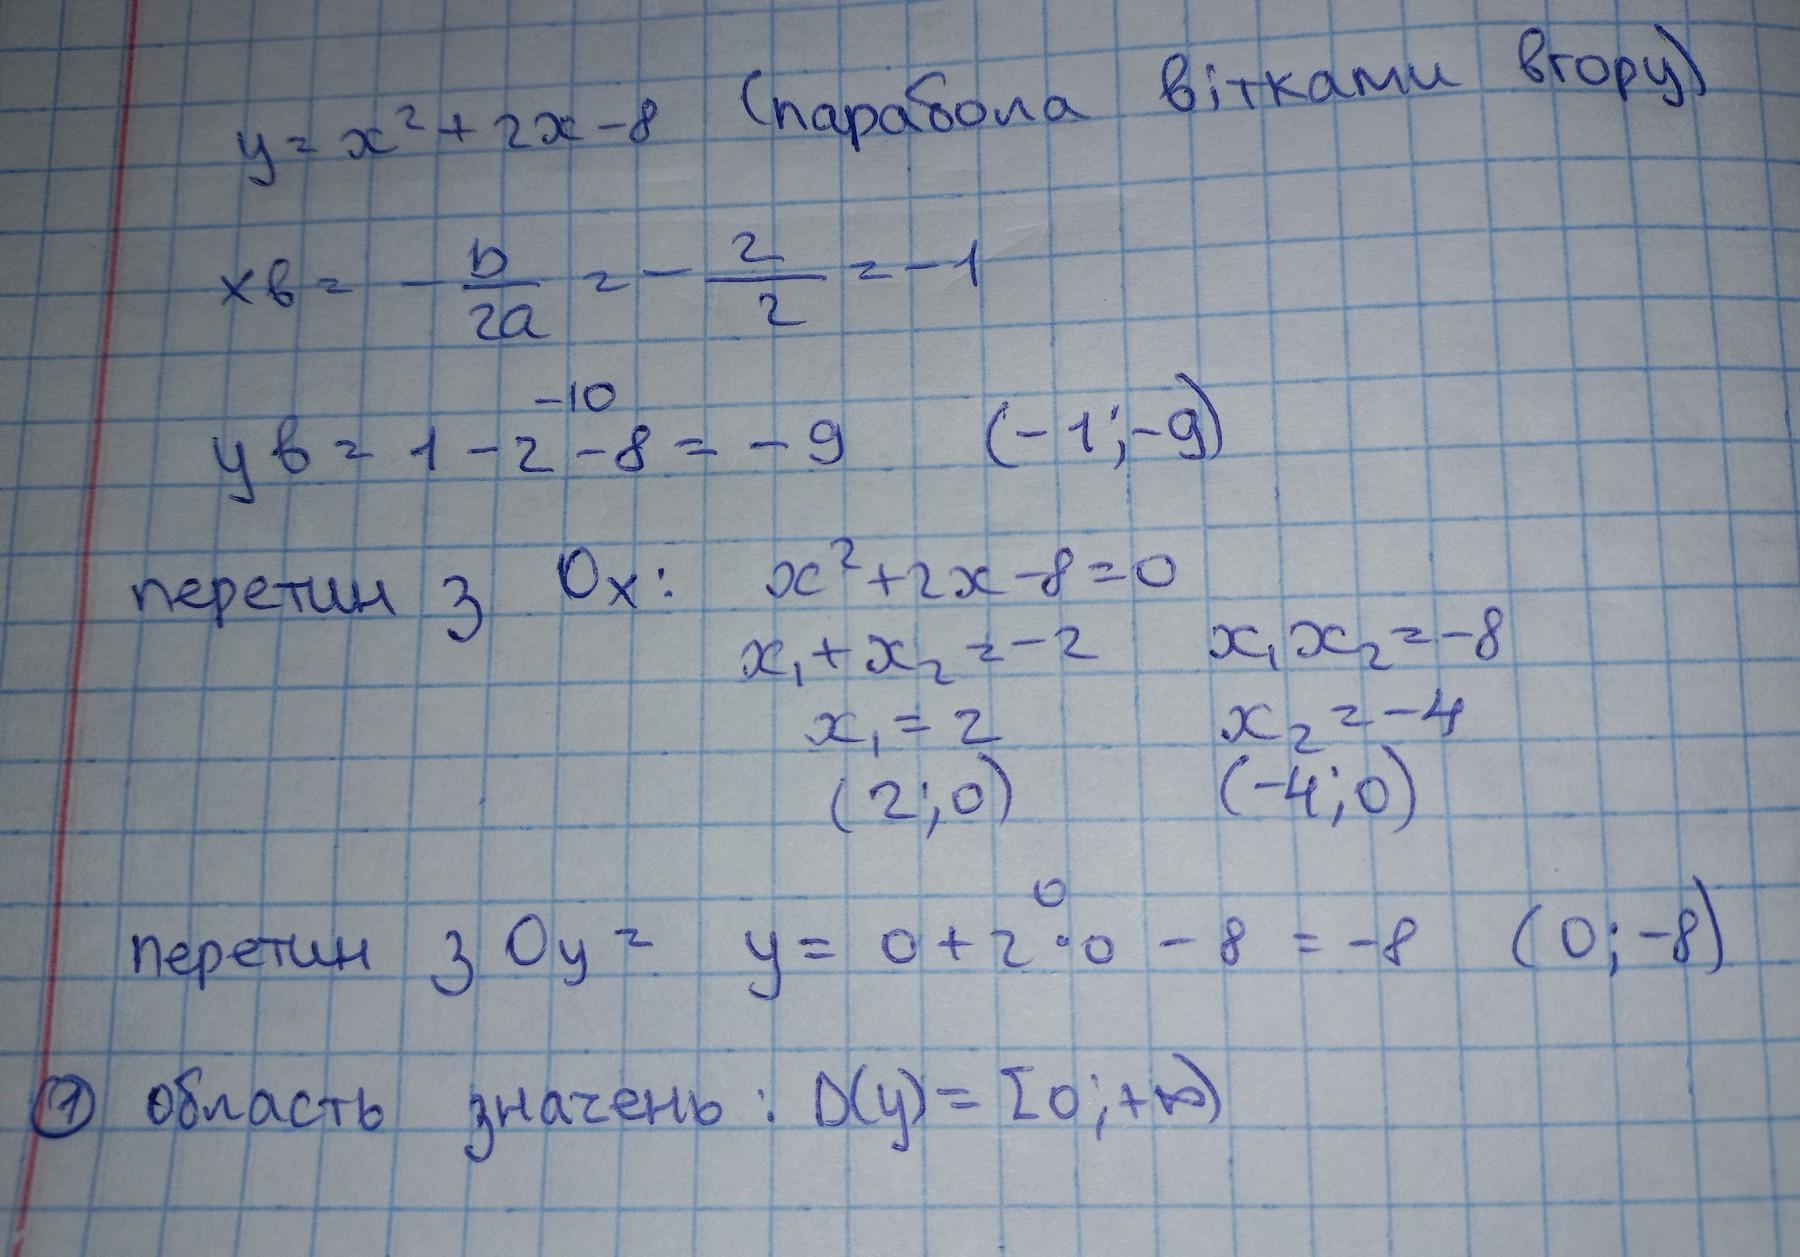 y = x² + 2x - 8 (парабола вітками вгору)
xв = - b/2a = - 2/2 = -1
-10
yв = 1 - 2 - 8 = - 9 (-1; -9)
перетин з Ox: x² + 2x - 8 = 0
x₁ + x₂ = -2 x₁x₂ = -8
x₁ = 2 x₂ = -4
(2; 0) (-4; 0)
0
перетин з Oy = y = 0 + 2 · 0 - 8 = -8 (0; -8)
① область значень: D(y) = [0; +∞)